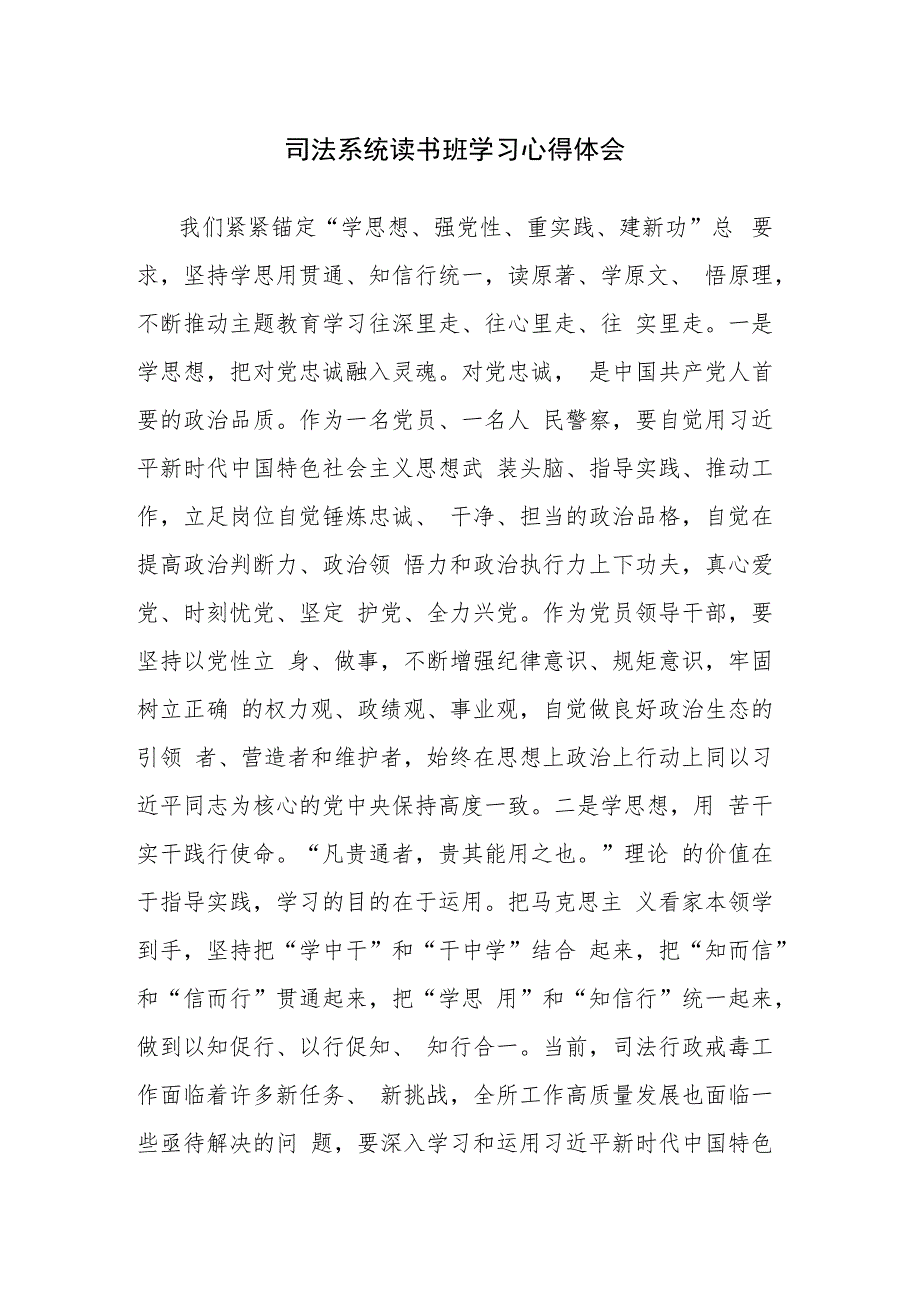 司法系统读书班学习心得体会
我们紧紧锚定“学思想、强党性、重实践、建新功”总 要
求，坚持学思用贯通、知信行统一，读原著、学原文、 悟原理，
不断推动主题教育学习往深里走、往心里走、往 实里走。一是
学思想，把对党忠诚融入灵魂。对党忠诚， 是中国共产党人首
要的政治品质。作为一名党员、一名人 民警察，要自觉用习近
平新时代中国特色社会主义思想武 装头脑、指导实践、推动工
作，立足岗位自觉锤炼忠诚、 干净、担当的政治品格，自觉在
提高政治判断力、政治领 悟力和政治执行力上下功夫，真心爱
党、时刻忧党、坚定 护党、全力兴党。作为党员领导干部，要
坚持以党性立 身、做事，不断增强纪律意识、规矩意识，牢固
树立正确 的权力观、政绩观、事业观，自觉做良好政治生态的
引领 者、营造者和维护者，始终在思想上政治上行动上同以习
近平同志为核心的党中央保持高度一致。二是学思想，用 苦干
实干践行使命。“凡贵通者，贵其能用之也。”理论 的价值在
于指导实践，学习的目的在于运用。把马克思主 义看家本领学
到手，坚持把“学中干”和“干中学”结合 起来，把“知而信”
和“信而行”贯通起来，把“学思 用”和“知信行”统一起来，
做到以知促行、以行促知、 知行合一。当前，司法行政戒毒工
作面临着许多新任务、 新挑战，全所工作高质量发展也面临一
些亟待解决的问 题，要深入学习和运用习近平新时代中国特色